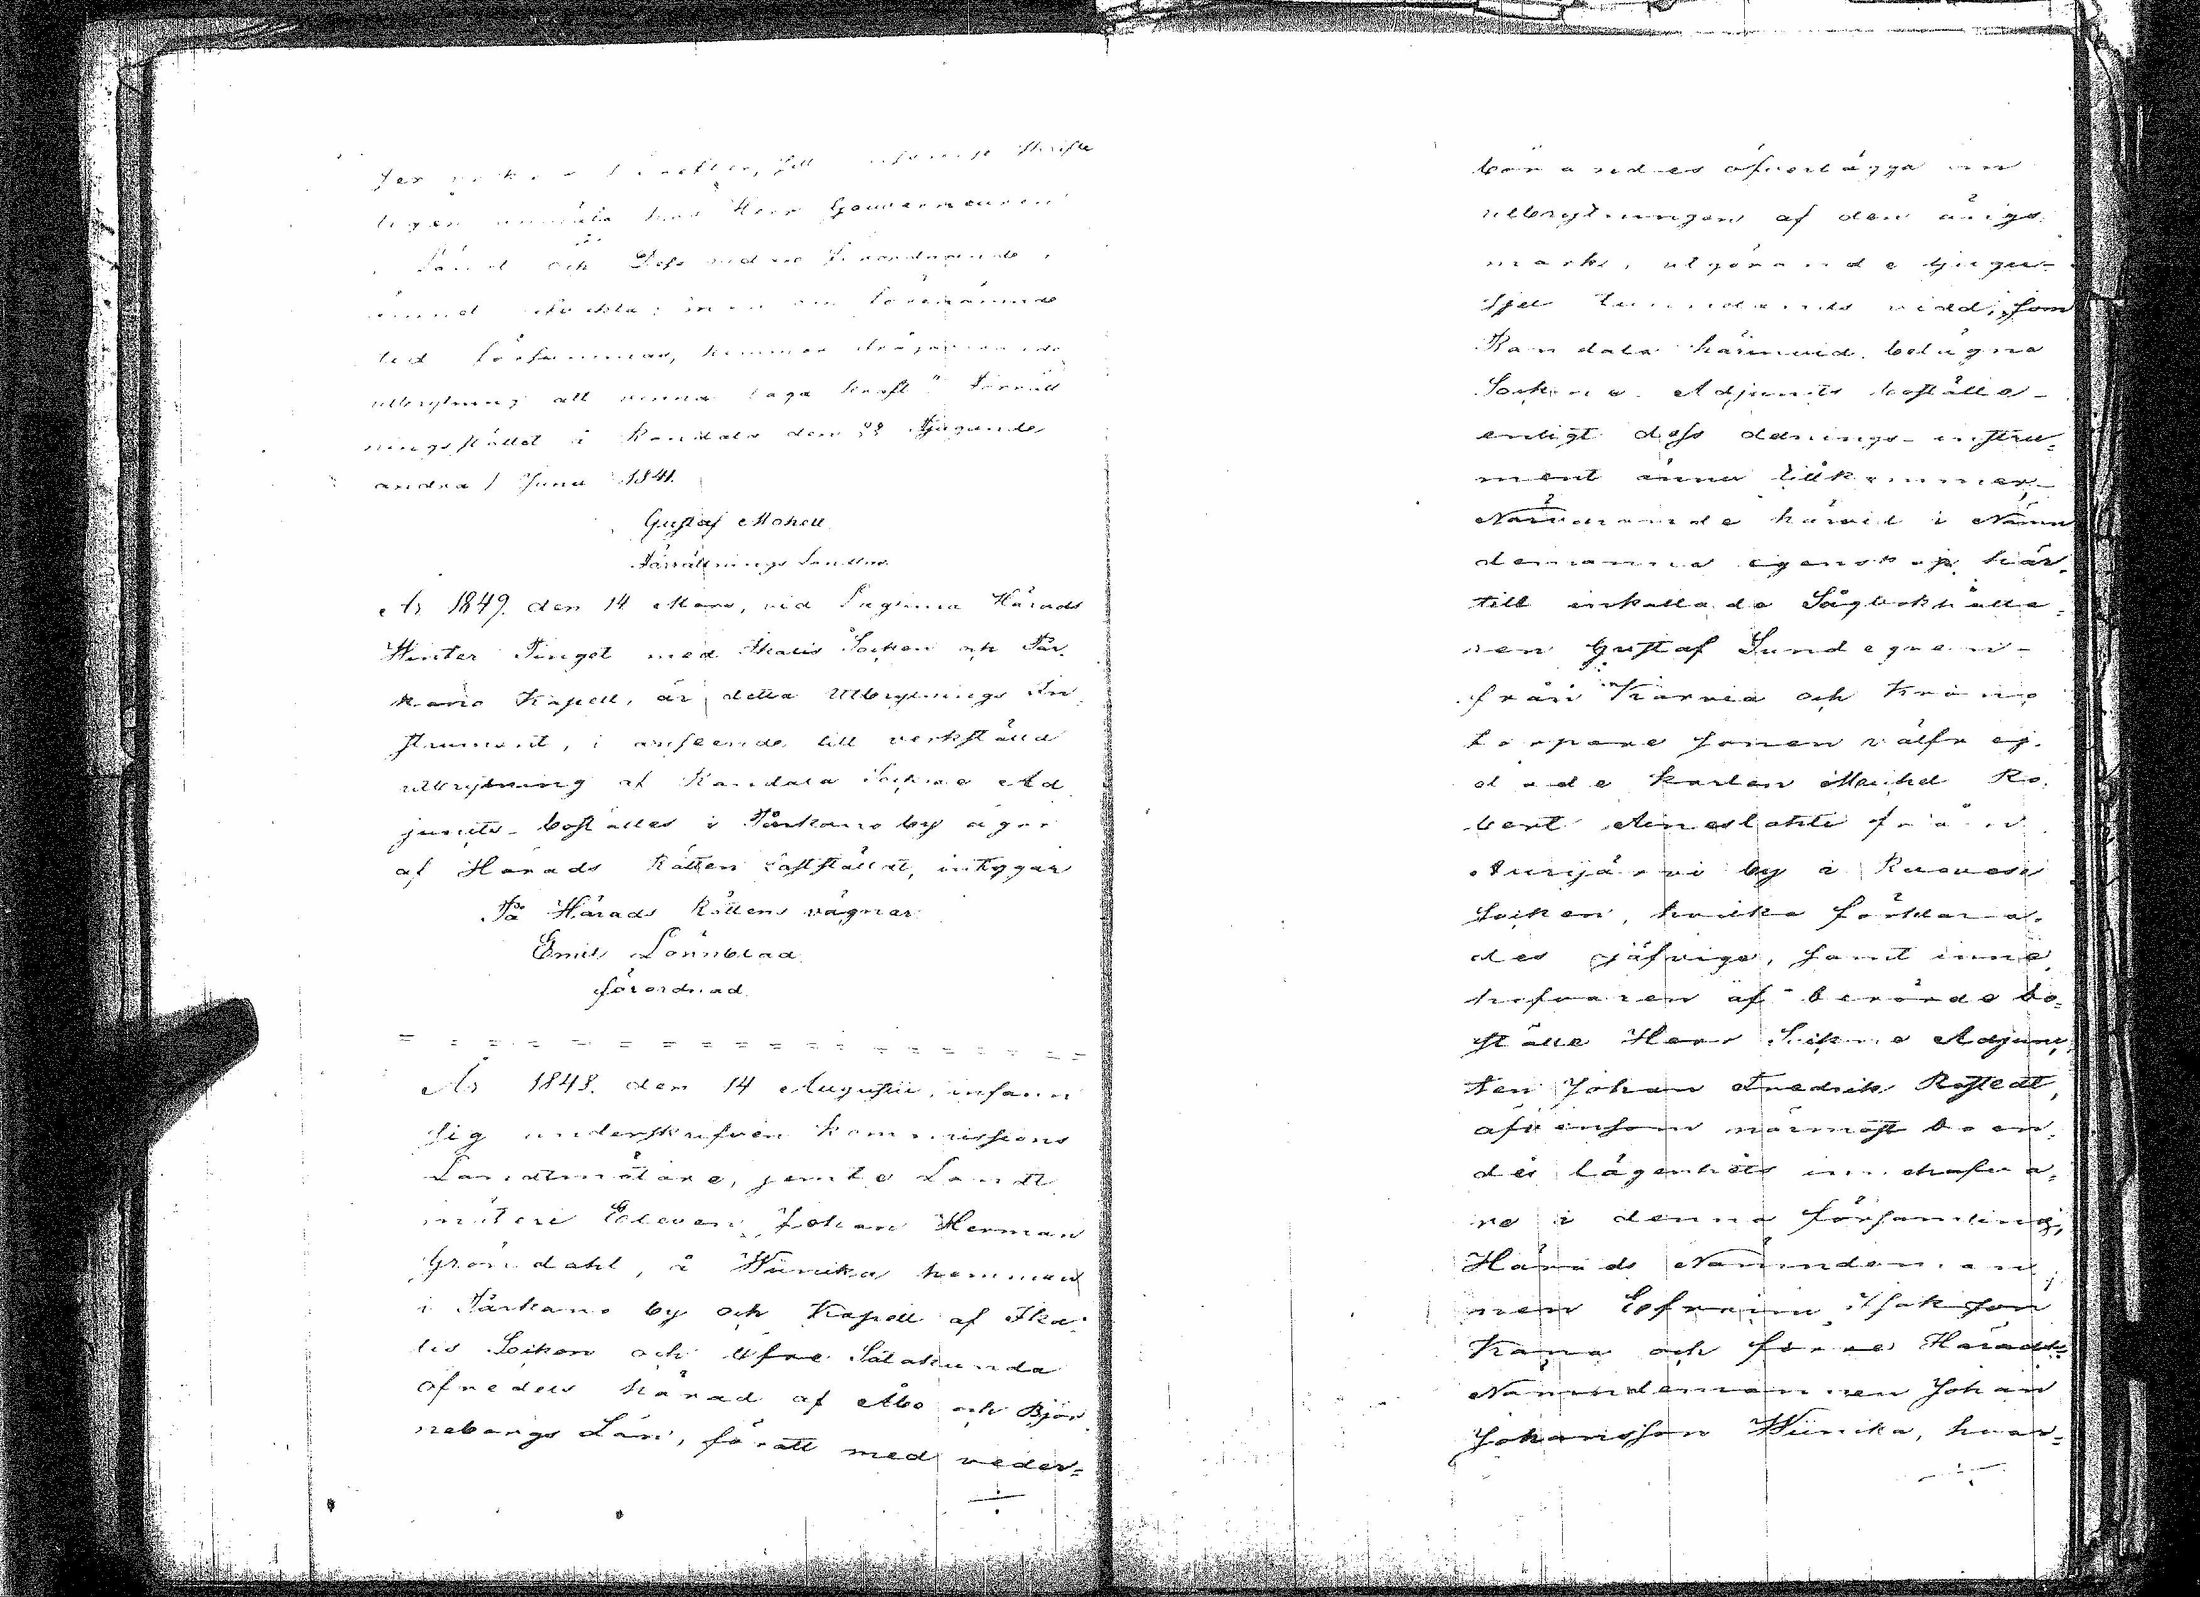 ligen anmäla hos Herr Gouverneuren
i Länet och Dess vidare förordnande i
ämnet afvakta; men om förenämnde
tid försummas, kommer ifrågavarande
utbrytning att vinna laga kraft". Förrätt
ningsstället å Kandala den 22 Tjugunde
andra / Junii 1841.
Gustaf Mohell
Förrättnings Landtm.
År 1849. den 14 Mars, vid Lagtima Härads
Winter Tinget med Ikalis Socken och Par
kano Kapell, är detta Utbrytnings In
strument, i anseende till verkställd
utbrytning af Kandala Sockne Ad
juncts boställes i Parkano by ägor
af Härads Rätten fastställdt, intygar
På Härads Rättens vägnar:
Emil Lönnblad
förordnad
År 1843. den 14 Augustii, infann
sig underskrifven Kommissions
Landtmätare, jemte Landt
mäteri Eleven Johan Herman
Gröndahl, å Wiinika hemman
i Parkano by och Kapell af Ika-
lis Socken och Öfre Satakunda
öfredels härad af Åbo och Björ
neborgs Län, för att med veder=
börandes öfverlägga om
utbrytningen af den ängs
mark, utgörande tjugu-
sju tunnlands vidd, som
Kandala härinvid belägna
Sockne Adjuncts boställe-
enligt dess delnings-instru=
ment ännu tillkommer.
Närvarande härvid i Nämn
demanna egenskap här-
till inkallade Sågbokhålla=
ren Gustaf Sundegren
från Karvia och Krono
torpare sonen välfrej-
dade karlen Michel Ro-
bert Aineslahti från
Aurejärvi by i Ruovesi
Socken, hvilka förklara-
des ojäfvige, samt inne
hafvaren af berörde bo=
ställe Herr Sockne Adjunc
ten Johan Fredrik Rostedt,
äfvensom närmast boen=
de lägenhets innehafva=
re i denna församling,
Härads Nämndeman
nen Efraim Isaksson
Kana och förre Härads=
Nämndemannen Johan
Johansson Wiinika, hvar=